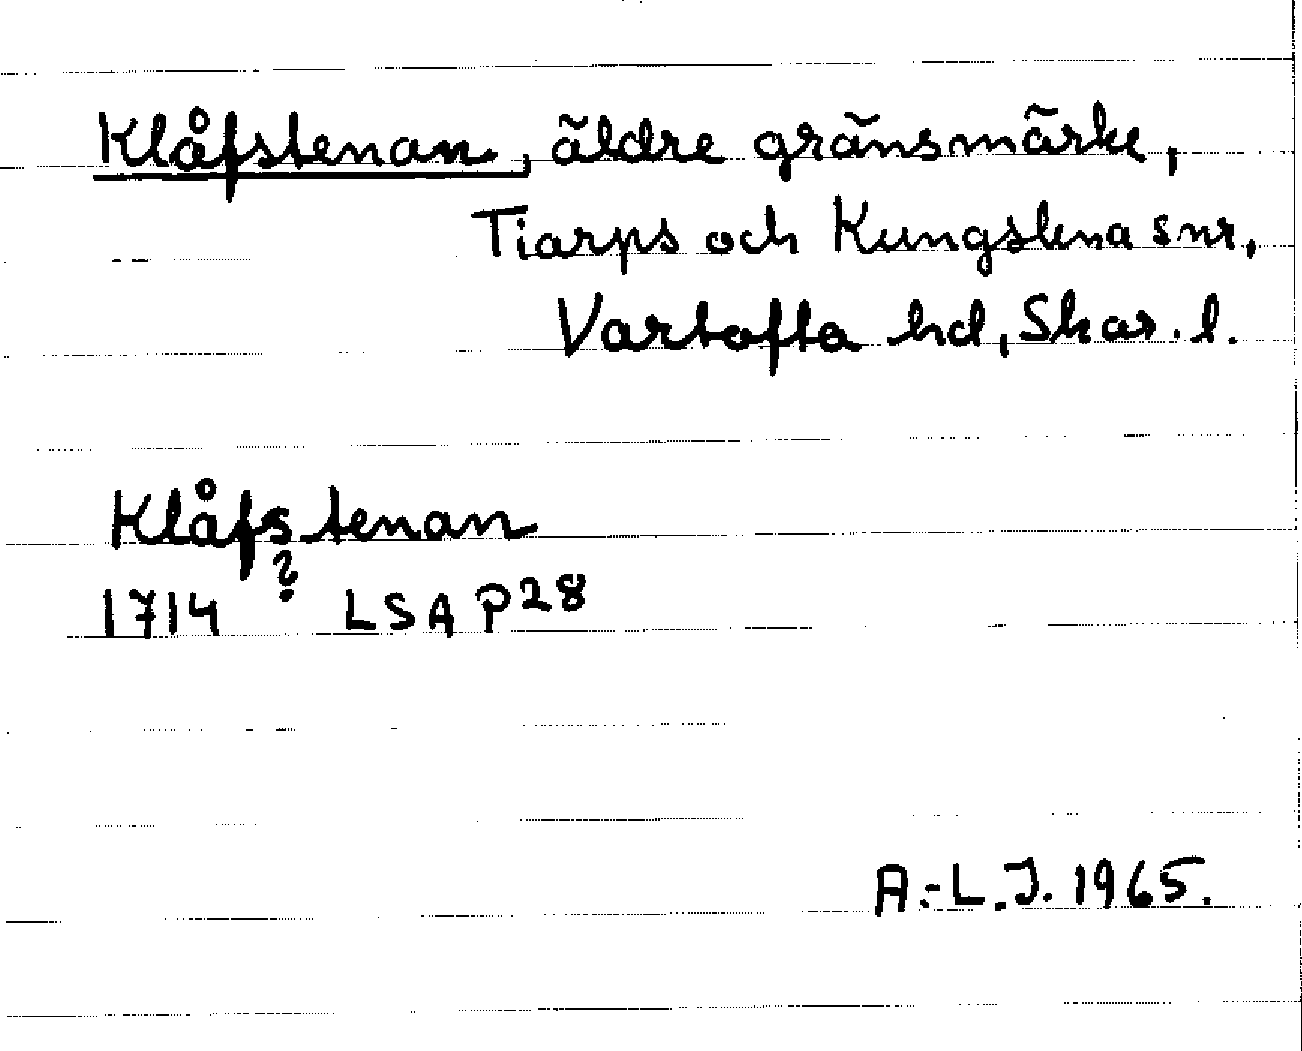 Klåfstenan, äldre gränsmärke,
Tiarps och Kungslena snr,
Vartofta hd, Skar. l.
Klåfstenan
?
1714 LSA P28
A.-L.J. 1965.